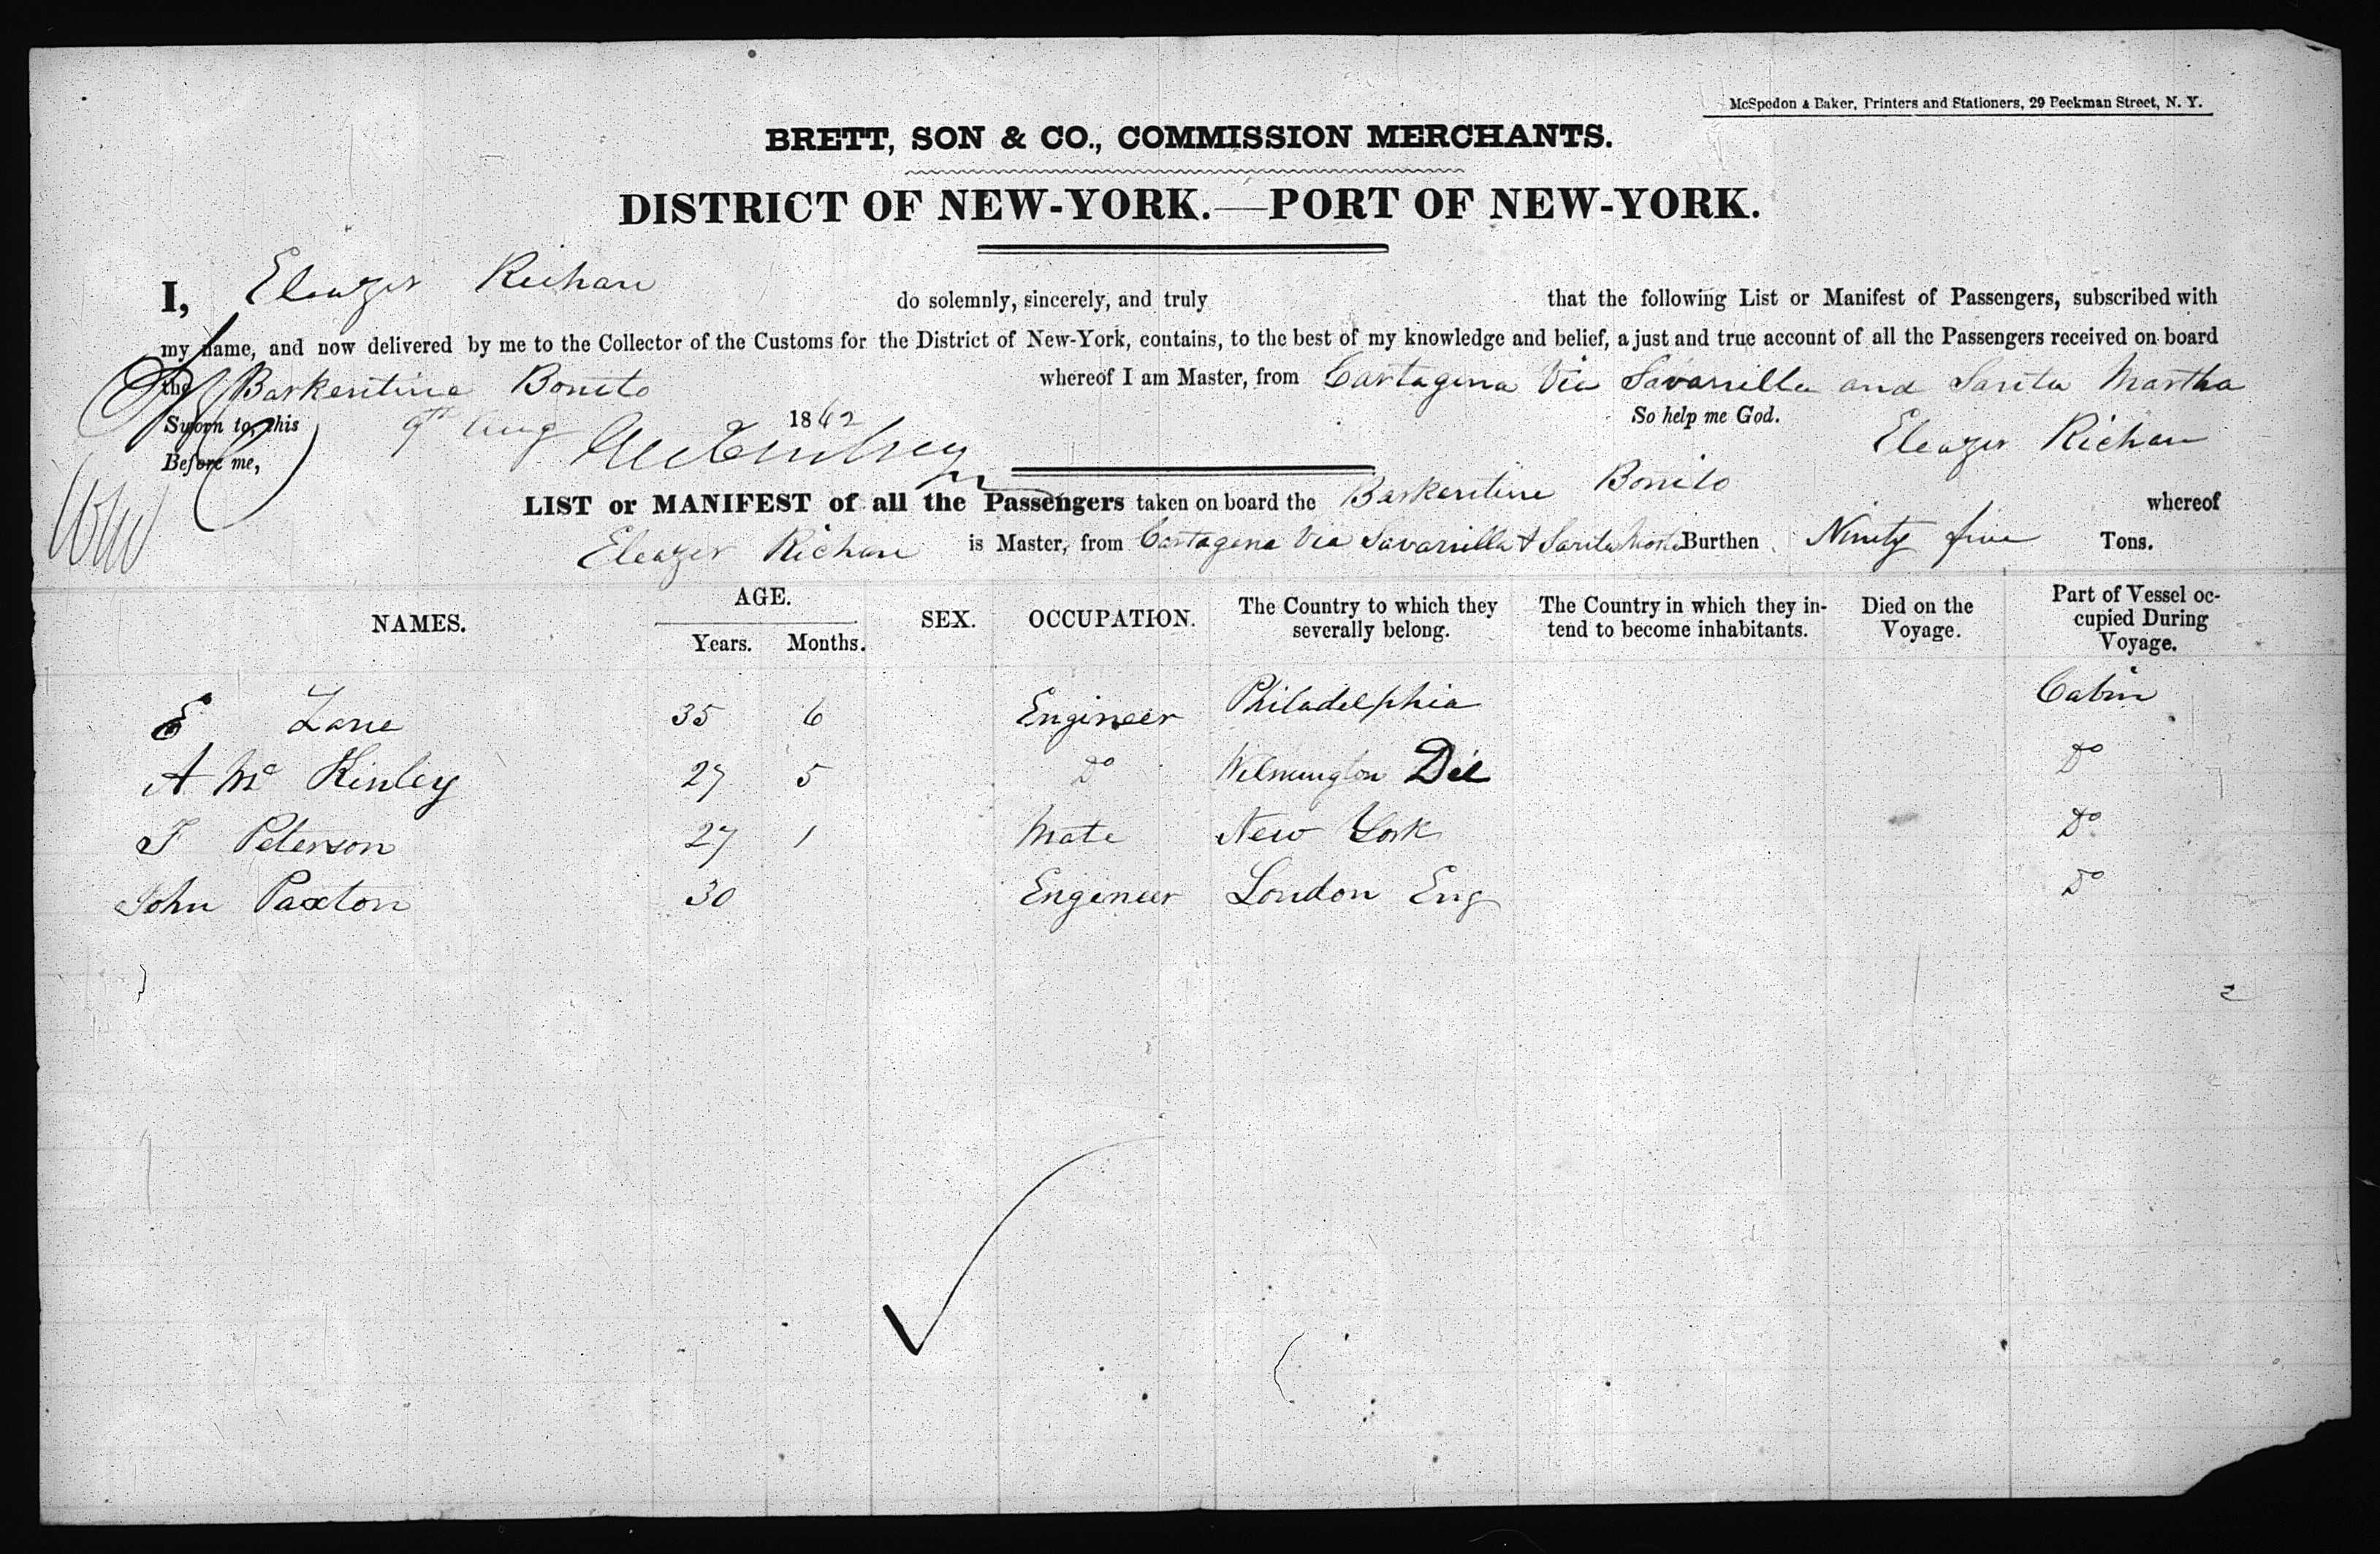 McSpedon & Baker, Printers and Stationers, 29 Beekman Street, N. Y.
BRETT, SON & CO., COMMISSION MERCHANTS.
DISTRICT OF NEW-YORK.—PORT OF NEW-YORK.
I, Eleazer Richan do solemnly, sincerely, and truly that the following List or Manifest of Passengers, subscribed with
my name, and now delivered by me to the Collector of the Customs for the District of New-York, contains, to the best of my knowledge and belief, a just and true account of all the Passengers received on board
the Barkentine Bonito whereof I am Master, from Cartagena Via Savanilla and Santa Martha
Sworn to, this 9th Aug 1862 So help me God. Eleazer Richan
Before me,
LIST or MANIFEST of all the Passengers taken on board the Barkentine Bonito whereof
Eleazer Richan is Master, from Cartagena Via Savanilla & Santa Martha Burthen Ninety five Tons.
NAMES. AGE. Years. Months. SEX. OCCUPATION. The Country to which they severally belong. The Country in which they intend to become inhabitants. Died on the Voyage. Part of Vessel occupied During Voyage.
E Lane 35 6 Engineer Philadelphia Cabin
A Mc Kinley 27 5 Do Wilmington Del Do
J Peterson 27 1 Mate New York Do
John Paxton 30 Engineer London Eng Do